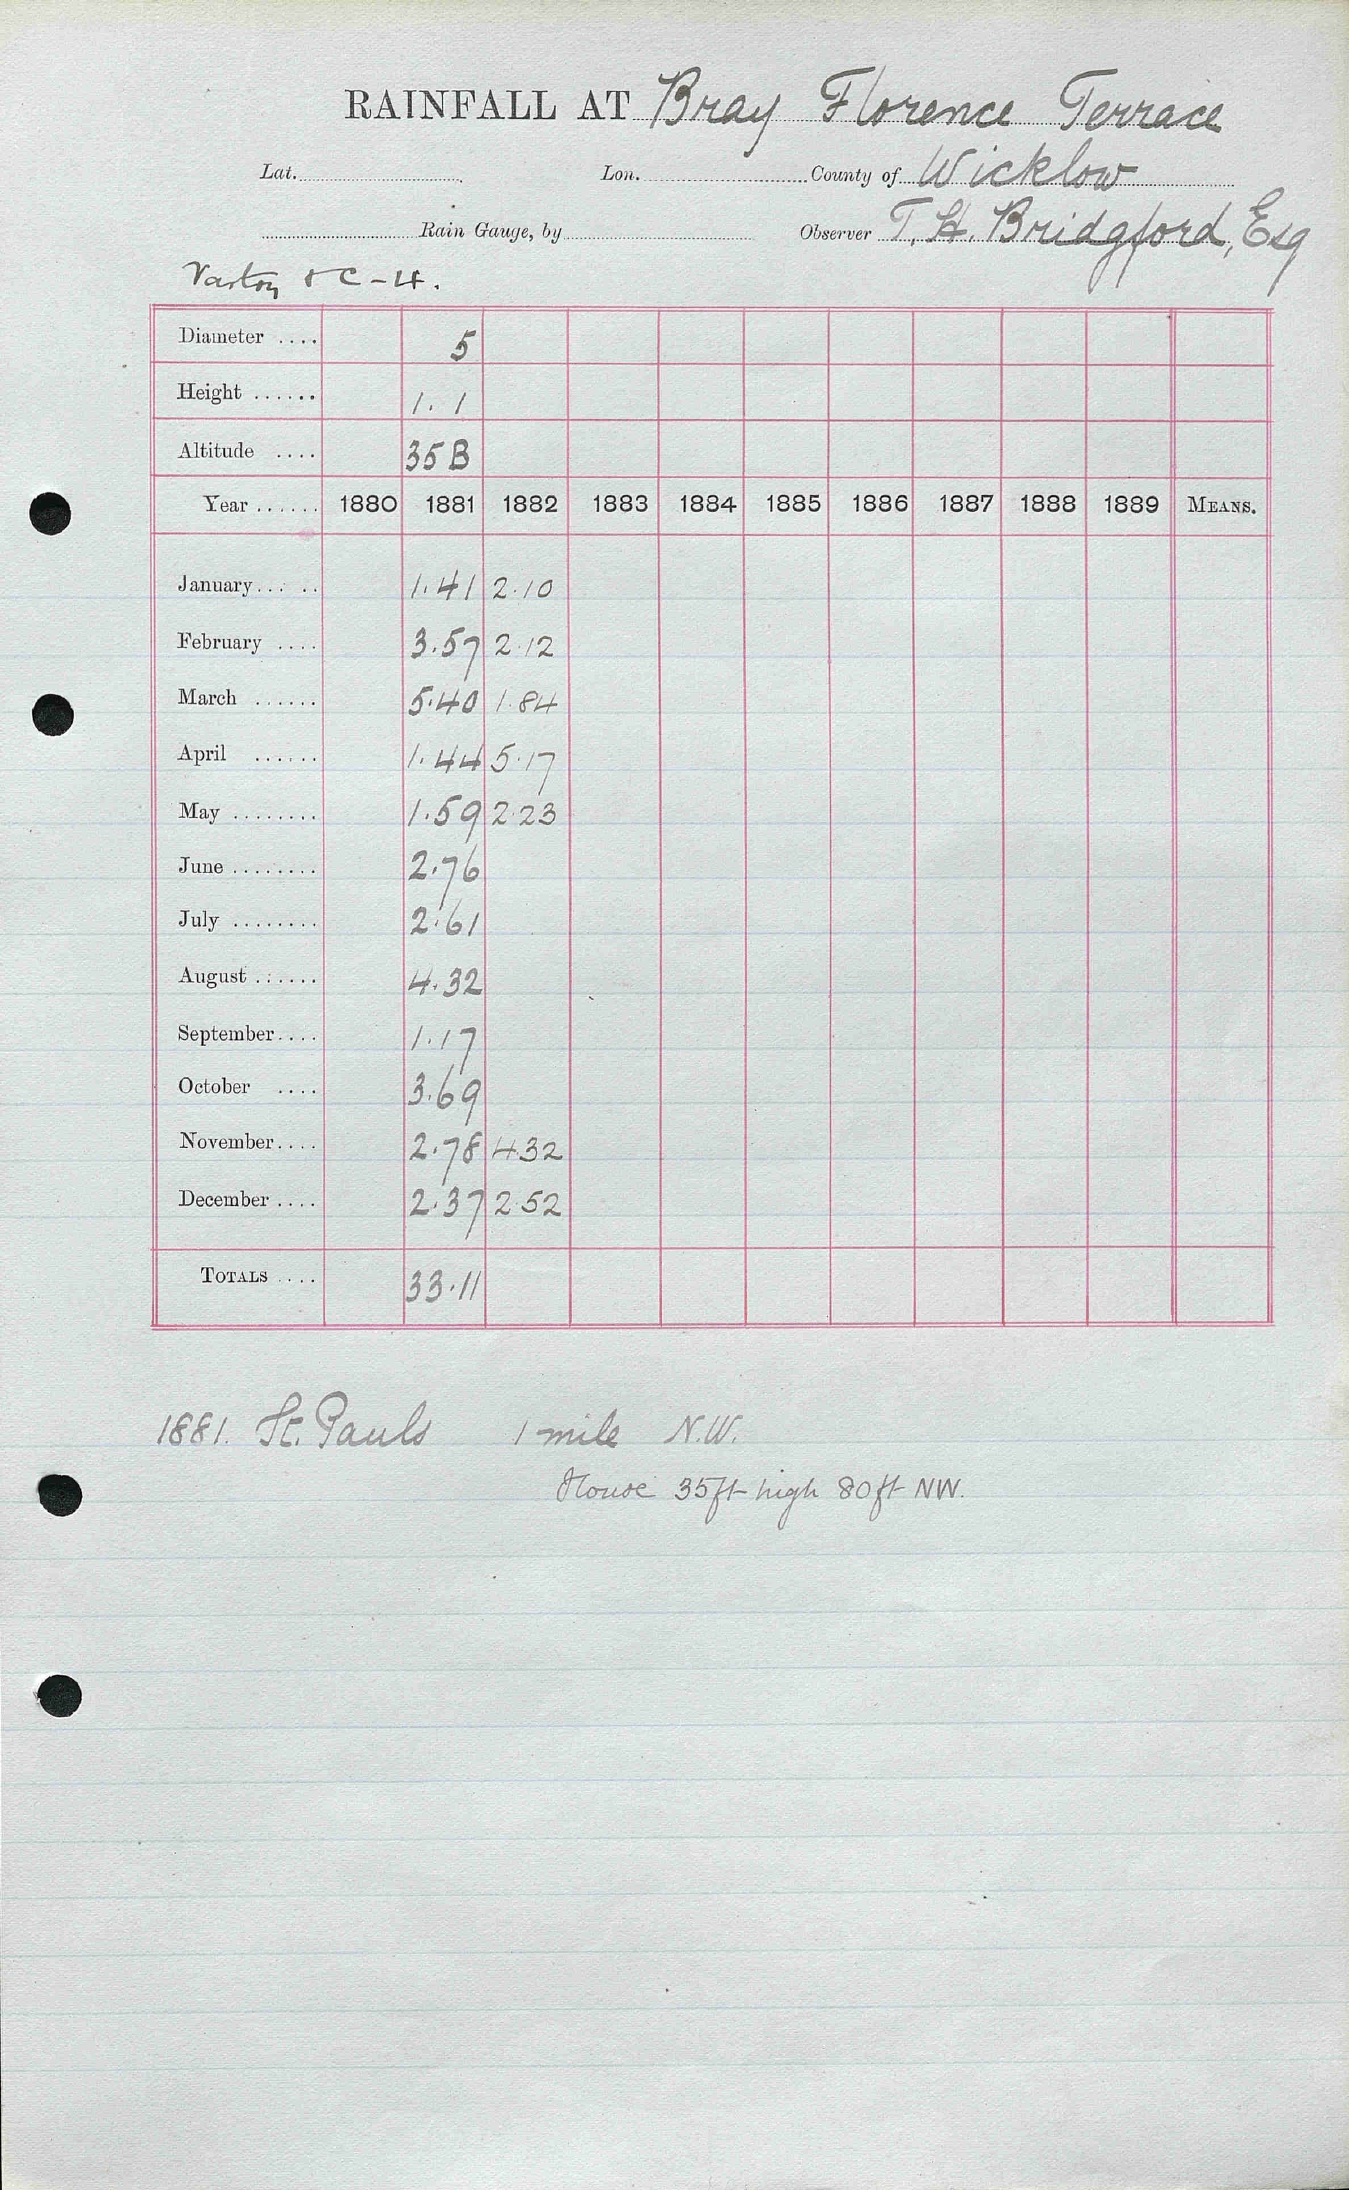 RAINFALL AT Bray Florence Terrace
Lat. Lon. County of Wicklow
Rain Gauge, by Observer T. H. Bridgford, Esq
& C-4.
Diameter .... 5
Height ...... 1. 1
Altitude .... 35 B
Year ...... 1880 1881 1882 1883 1884 1885 1886 1887 1888 1889 MEANS.
January... .. 1.41 2.10
February .... 3.57 2.12
March ...... 5.40 1.84
April ...... 1.44 5.17
May ........ 1.59 2.23
June ........ 2.76
July ........ 2.61
August ...... 4.32
September.... 1.17
October .... 3.69
November.... 2.78 4.32
December .... 2.37 2.52
TOTALS .... 33.11
1881. St. Pauls 1 mile N.W.
House 35ft high 80ft NW.